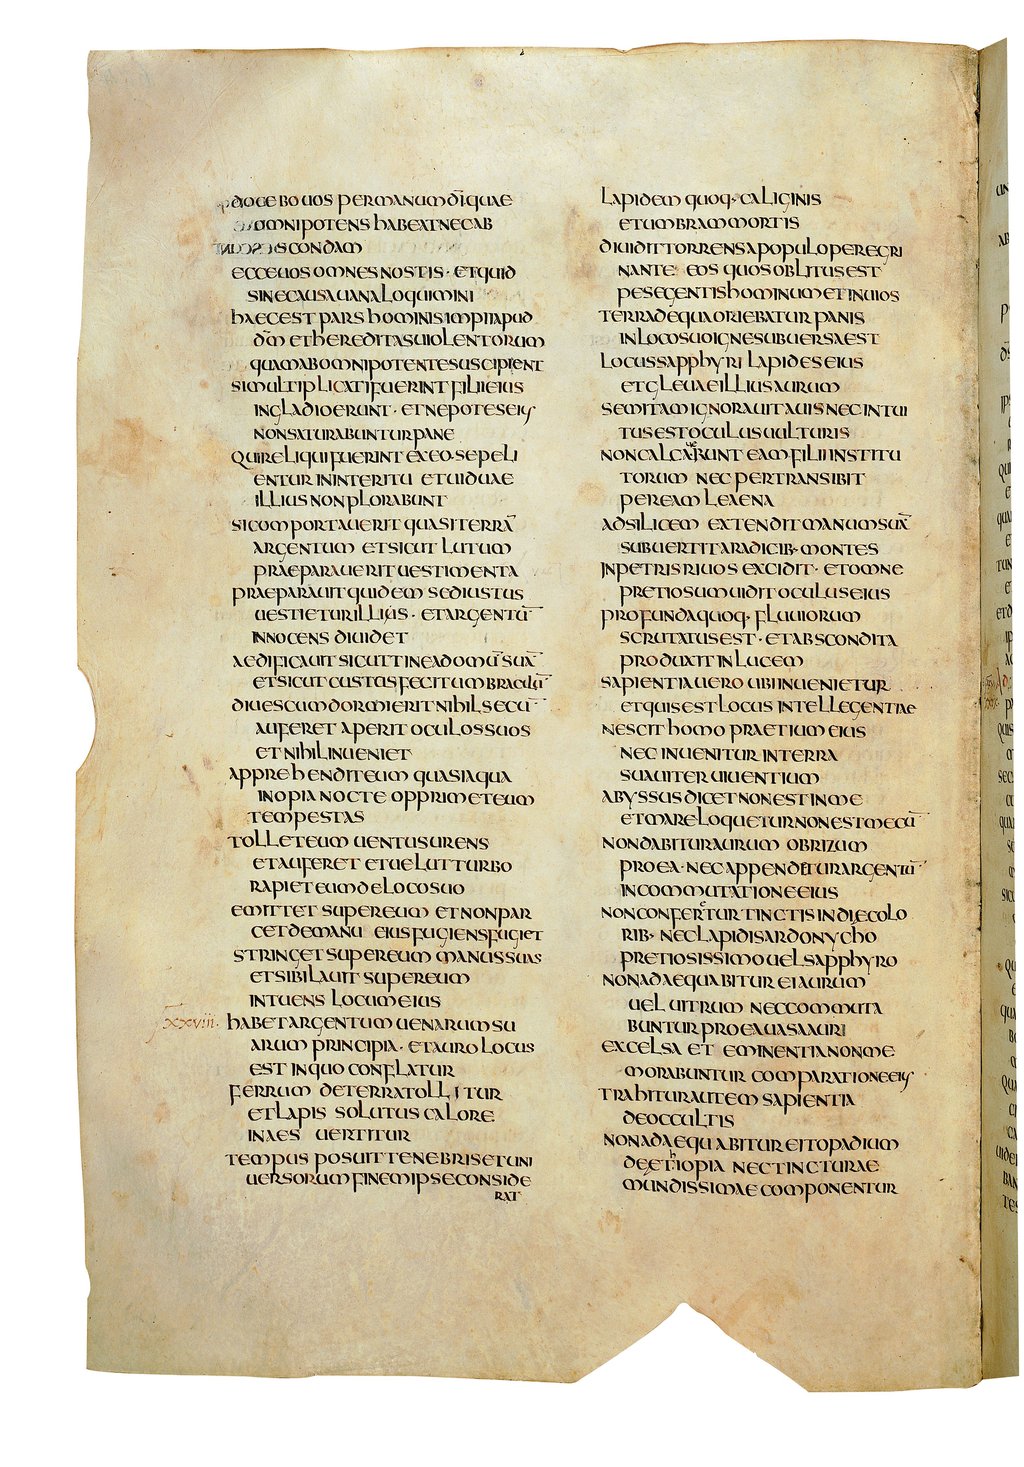 DOCEBO UOS PER MANUM D̄I QUAE
OMNIPOTENS HABEAT NEC AB
SCONDAM
ECCE UOS OMNES NOSTIS · ET QUID
SINE CAUSA UANA LOQUIMINI
HAEC EST PARS HOMINIS IMPII APUD
D̄M ET HEREDITAS UIOLENTORUM
QUAM AB OMNIPOTENTE SUSCIPIENT
SI MULTIPLICATI FUERINT FILII EIUS
IN GLADIO ERUNT · ET NEPOTES EIUS
NON SATURABUNTUR PANE
QUI RELIQUI FUERINT EX EO SEPELI
ENTUR IN INTERITU ET UIDUAE
ILLIUS NON PLORABUNT
SI COMPORTAUERIT QUASI TERRĀ
ARGENTUM ET SICUT LUTUM
PRAEPARAUERIT UESTIMENTA
PRAEPARAUIT QUIDEM SED IUSTUS
UESTIETUR ILLIUS · ET ARGENTŪ
INNOCENS DIUIDET
AEDIFICAUIT SICUT TINEA DOMŪ SUĀ
ET SICUT CUSTOS FECIT UMBRACULŪ
DIUES CUM DORMIERIT NIHIL SECŪ
AUFERET APERIT OCULOS SUOS
ET NIHIL INUENIET
APPREHENDIT EUM QUASI AQUA
INOPIA NOCTE OPPRIMET EUM
TEMPESTAS
TOLLET EUM UENTUS URENS
ET AUFERET ET UELUT TURBO
RAPIET EUM DE LOCO SUO
EMITTET SUPER EUM ET NON PAR
CET DE MANU EIUS FUGIENS FUGIET
STRINGET SUPER EUM MANUS SUAS
ET SIBILAUIT SUPER EUM
INTUENS LOCUM EIUS
XXVIII· HABET ARGENTUM UENARUM SU
ARUM PRINCIPIA · ET AURO LOCUS
EST IN QUO CONFLATUR
FERRUM DE TERRA TOLLITUR
ET LAPIS SOLUTUS CALORE
IN AES UERTITUR
TEMPUS POSUIT TENEBRIS ET UNI
UERSORUM FINEM IPSE CONSIDE
RAT
LAPIDEM QUOQ· CALIGINIS
ET UMBRAM MORTIS
DIUIDIT TORRENS A POPULO PEREGRI
NANTE EOS QUOS OBLITUS EST
PES EGENTIS HOMINUM ET INUIOS
TERRA DE QUA ORIEBATUR PANIS
IN LOCO SUO IGNE SUBUERSA EST
LOCUS SAPPHYRI LAPIDES EIUS
ET GLEUAE ILLIUS AURUM
SEMITAM IGNORAUIT AUIS NEC INTUI
TUS EST OCULUS UULTURIS
NON CALCAUERUNT EAM FILII INSTITU
TORUM NEC PERTRANSIBIT
PER EAM LEAENA
AD SILICEM EXTENDIT MANUM SUĀ
SUBUERTIT A RADICIB· MONTES
IN PETRIS RIUOS EXCIDIT · ET OMNE
PRETIOSUM UIDIT OCULUS EIUS
PROFUNDA QUOQ· FLUUIORUM
SCRUTATUS EST · ET ABSCONDITA
PRODUXIT IN LUCEM
SAPIENTIA UERO UBI INUENIETUR
ET QUIS EST LOCUS INTELLEGENTIAE
NESCIT HOMO PRAETIUM EIUS
NEC INUENITUR IN TERRA
SUAUITER UIUENTIUM
ABYSSUS DICET NON EST IN ME
ET MARE LOQUETUR NON EST MECŪ
NON DABITUR AURUM OBRIZUM
PRO EA · NEC APPENDETUR ARGENTŪ
IN COMMUTATIONE EIUS
NON CONFERETUR TINCTIS INDIE COLO
RIB· NEC LAPIDI SARDONYCHO
PRETIOSISSIMO UEL SAPPHYRO
NON ADAEQUABITUR EI AURUM
UEL UITRUM NEC COMMUTA
BUNTUR PRO EA UASA AURI
EXCELSA ET EMINENTIA NON ME
MORABUNTUR COMPARATIONE EIUS
TRAHITUR AUTEM SAPIENTIA
DE OCCULTIS
NON ADAEQUABITUR EI TOPADIUM
DE ETHIOPIA NEC TINCTURAE
MUNDISSIMAE COMPONENTUR